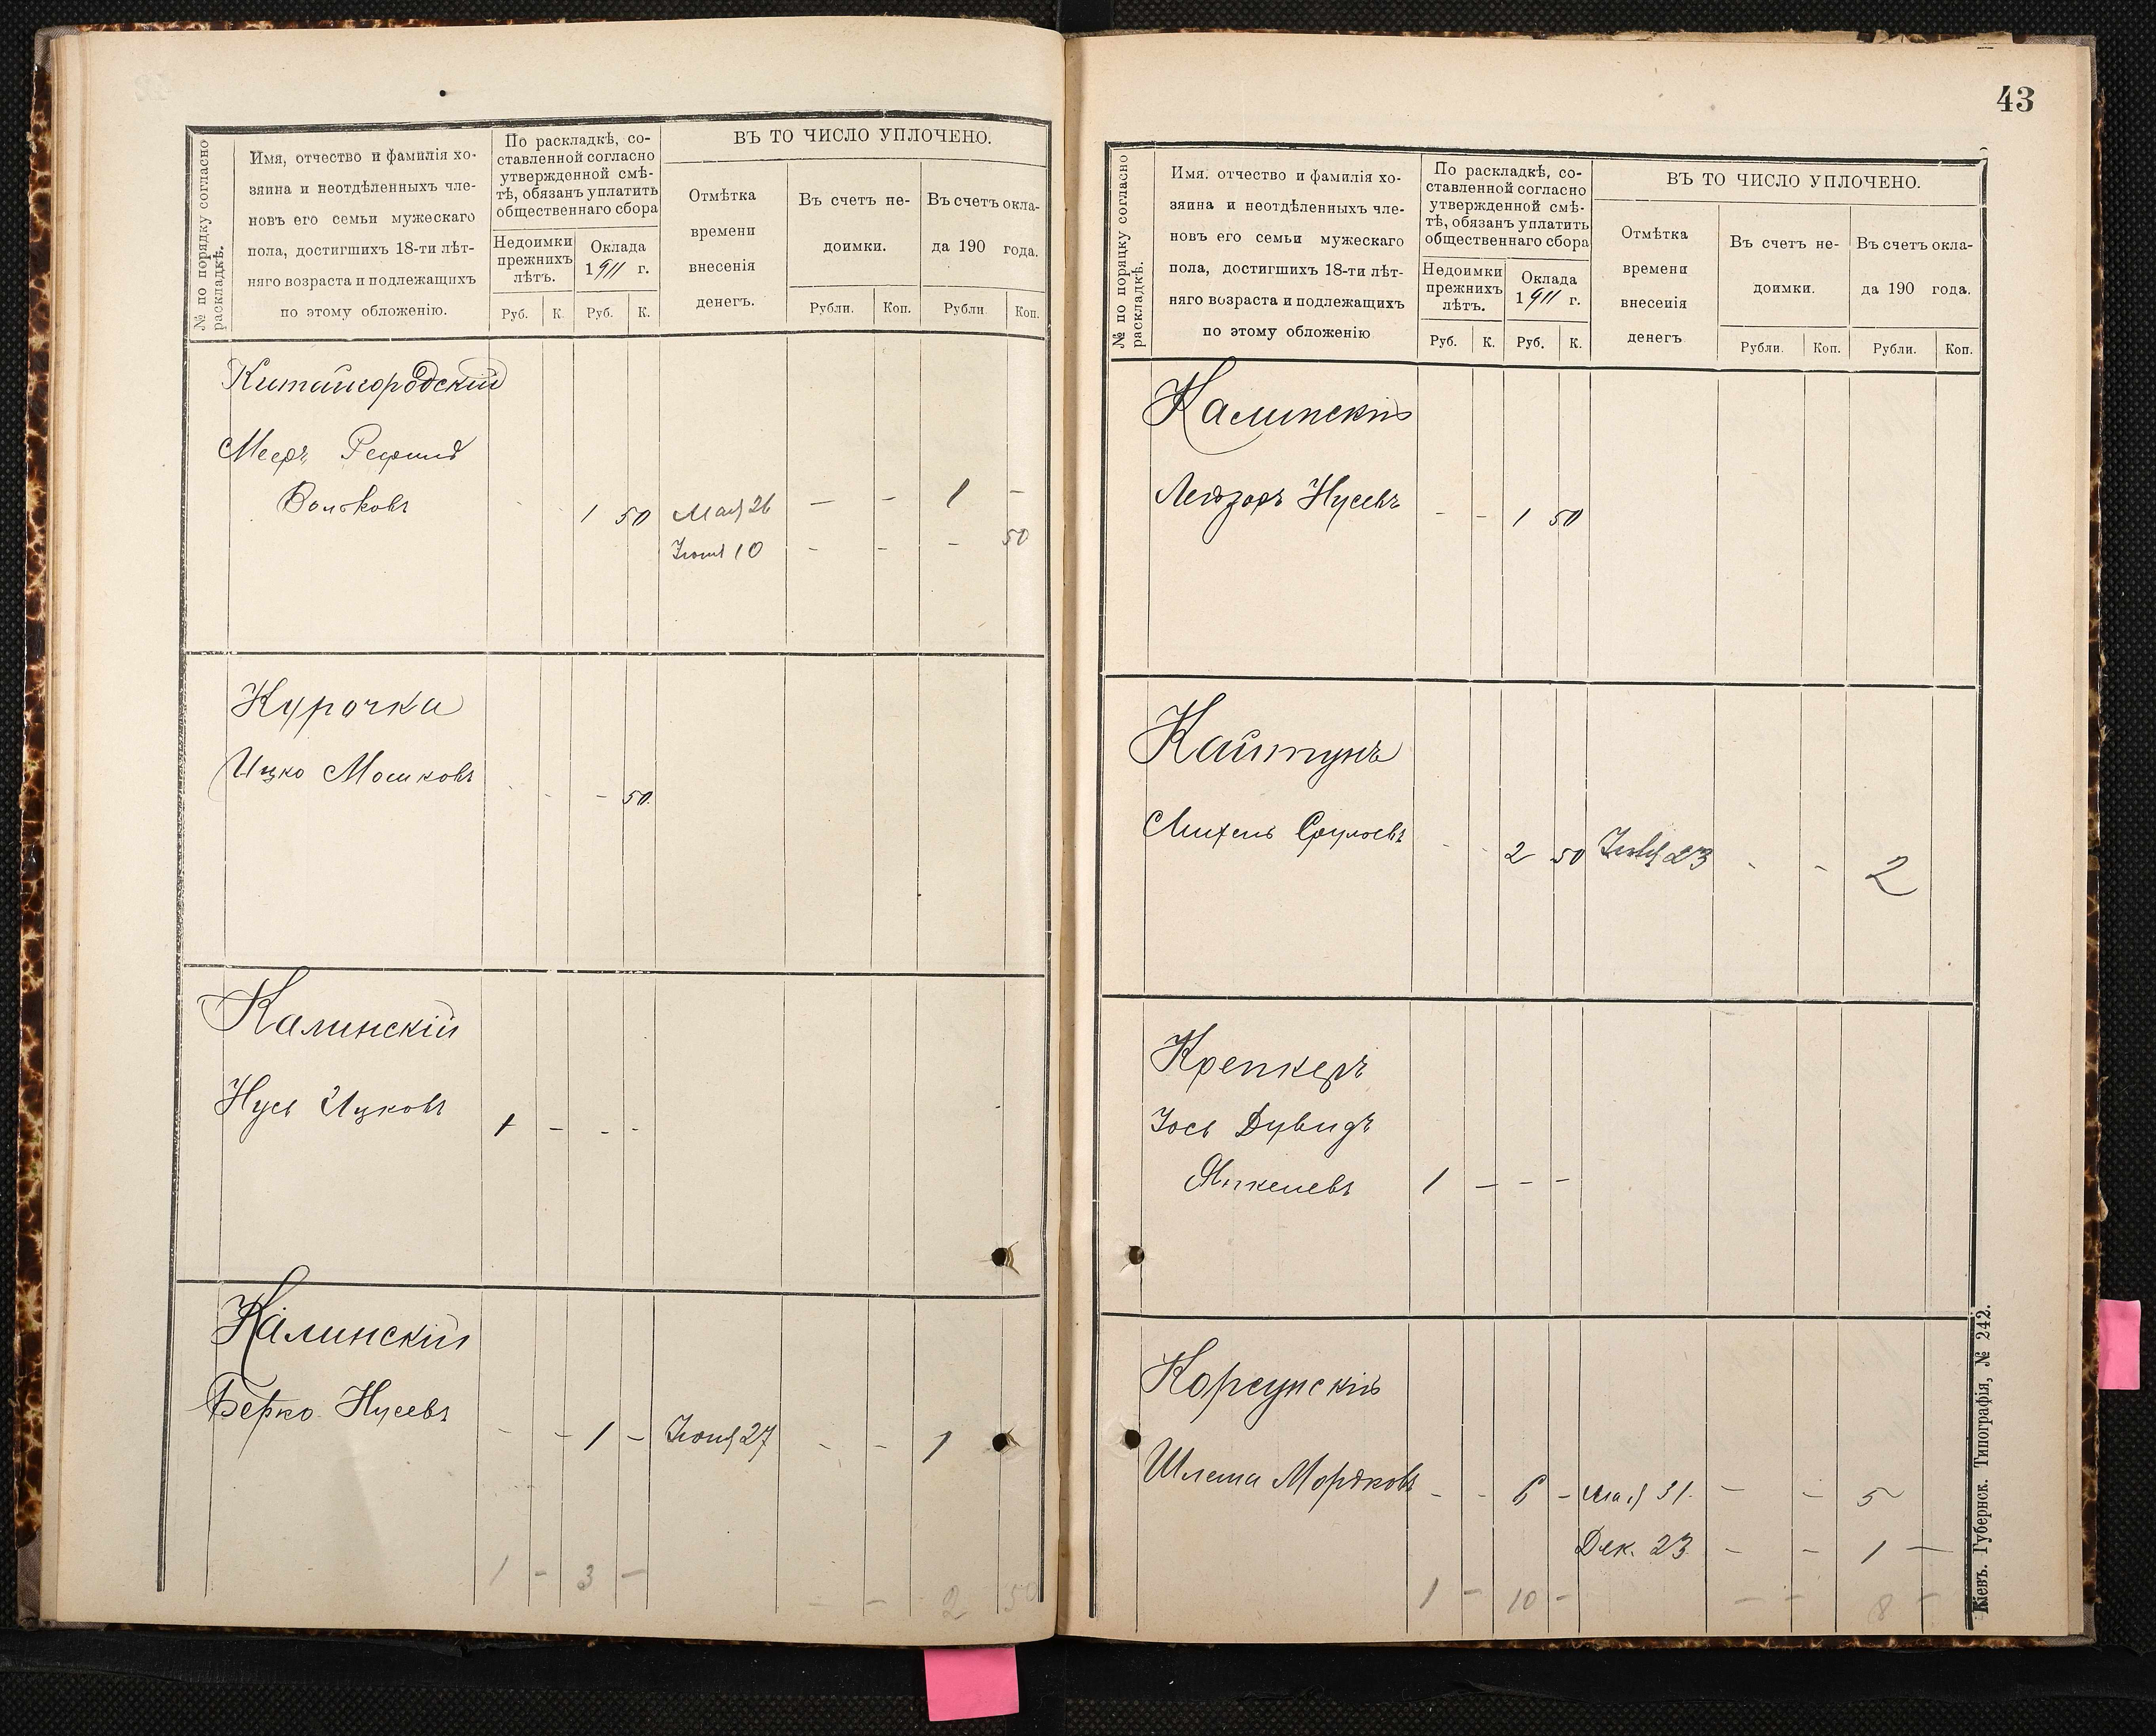 № по порядку согласно
раскладкѣ.
Имя, отчество и фамилія хо-
зяина и неотдѣленныхъ чле-
новъ его семьи мужескаго
пола, достигшихъ 18-ти лѣт-
няго возраста и подлежащихъ
по этому обложенію.
По раскладкѣ, со-
ставленной согласно
утвержденной смѣ-
тѣ, обязанъ уплатить
общественнаго сбора
Недоимки
прежнихъ
лѣтъ.
Оклада
1911 г.
Руб. К. Руб. К.
ВЪ ТО ЧИСЛО УПЛОЧЕНО.
Отмѣтка
времени
внесенія
денегъ.
Въ счетъ не-
доимки.
Въ счетъ окла-
да 190 года.
Рубли. Коп. Рубли Коп.
Китайгородскій
Меер
Вольковъ - - 1 50 Мая 26 — - 1 —
Іюня 10 - - - 50
Курочка
Ицко Мошковъ - - - 50
Калинскій
Нусь Ицковъ 1 - - -
Калинскій
Берко Нусевъ - - 1 - Іюня 27 - - 1
1 - 3 -
- - 2 50
43
№ по порядку согласно
раскладкѣ.
Имя, отчество и фамилія хо-
зяина и неотдѣленныхъ чле-
новъ его семьи мужескаго
пола, достигшихъ 18-ти лѣт-
няго возраста и подлежащихъ
по этому обложенію
По раскладкѣ, со-
ставленной согласно
утвержденной смѣ-
тѣ, обязанъ уплатить
общественнаго сбора
Недоимки
прежнихъ
лѣтъ.
Оклада
1911 г.
Руб. К. Руб. К.
ВЪ ТО ЧИСЛО УПЛОЧЕНО.
Отмѣтка
времени
внесенія
денегъ
Въ счетъ не-
доимки.
Въ счетъ окла-
да 190 года.
Рубли. Коп. Рубли. Коп.
Калинскій
Лейзоръ Нусевъ - - 1 50
Кайтунъ
Михель Срулевъ - - 2 50 23 - - 2
Крепкеръ
Іось Дувидъ
Янкелевъ 1 - - -
Корсунскій
Шлема Мордковъ - - 6 - Мая 31. - - 5
Дек. 23 - - 1 —
1 - 10 - - - 8 -
Кіевъ. Губернск. Типографія, № 242.